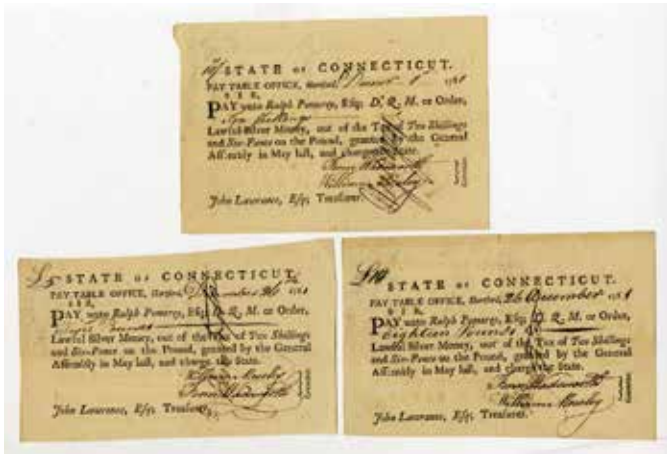 10/ STATE OF CONNECTICUT.
PAY TABLE OFFICE, Hartford, 1781
SIR,
PAY unto Ralph Pomeroy, Esq; D. Q. M. or Order,
Ten Shillings
Lawful Silver Money, out of the Tax of Two Shillings
and Six-Pence on the Pound, granted by the General
Assembly in May last, and charge the State.
Fenn Wadsworth
William Mosley
John Lawrance, Esq; Treasurer.
STATE OF CONNECTICUT.
PAY TABLE OFFICE, Hartford, December 26th 1781
SIR,
PAY unto Ralph Pomeroy, Esq; D. Q. M. or Order,
Pounds
Lawful Silver Money, out of the Tax of Two Shillings
and Six-Pence on the Pound, granted by the General
Assembly in May last, and charge the State.
William Mosley
Fenn Wadsworth
John Lawrance, Esq; Treasurer.
£18 STATE OF CONNECTICUT.
PAY TABLE OFFICE, Hartford, 26 December 1781
SIR,
PAY unto Ralph Pomeroy, Esq; D. Q. M. or Order,
Eighteen Pounds
Lawful Silver Money, out of the Tax of Two Shillings
and Six-Pence on the Pound, granted by the General
Assembly in May last, and charge the State.
Fenn Wadsworth
William Mosley
John Lawrance, Esq; Treasurer.